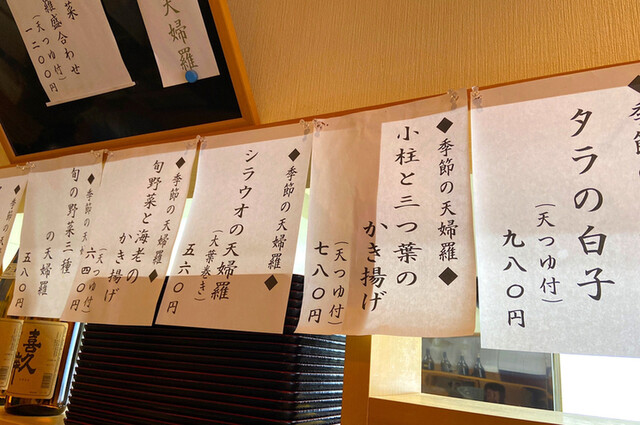 菜
羅盛合わせ
(天つゆ付)
一二〇〇円
天婦羅
季節
タラの白子
(天つゆ付)
九八〇円
◆季節の天婦羅◆
小柱と三つ葉の
かき揚げ
(天つゆ付)
七八〇円
◆季節の天婦羅◆
シラウオの天婦羅
(大葉巻き)
五六〇円
◆季節の天婦羅◆
旬野菜と海老の
かき揚げ
(天つゆ付)
六四〇円
◆季節の天
旬の野菜三種
の天婦羅
五八〇円
◆季節の天
喜久